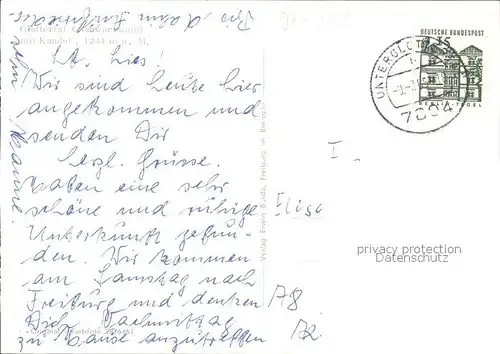 Glottertal (Schwarzwald)
mit Kandel, 1244 m ü. M.
Lb. Lies!
Wir sind heute hier
angekommen und
senden Dir
herzl. Grüsse.
Haben eine sehr
schöne und ruhige
Unterkunft gefun-
den. Wir kommen
am Samstag nach
Freiburg und denken
Dich Nachmittag
zu Hause anzutreffen
Verlag Erwin Burda, Freiburg im Breisgau
DEUTSCHE BUNDESPOST
UNTERGLOTTERTAL
7804
BERLIN-TEGEL
I
privacy protection
Datenschutz